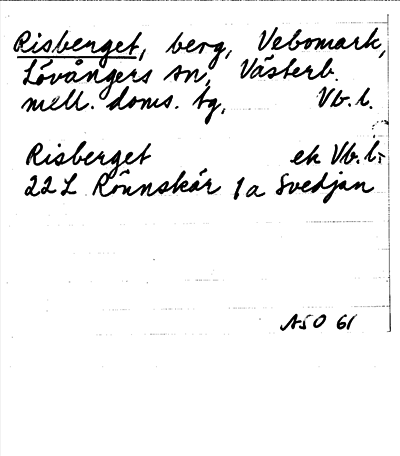 Risberget, berg, Vebomark,
Lövångers sn, Västerb.
mell. doms. tg, Vb. l.
Risberget ek Vb. l.
22 L Rönnskär 1a Svedjan
ASO 61